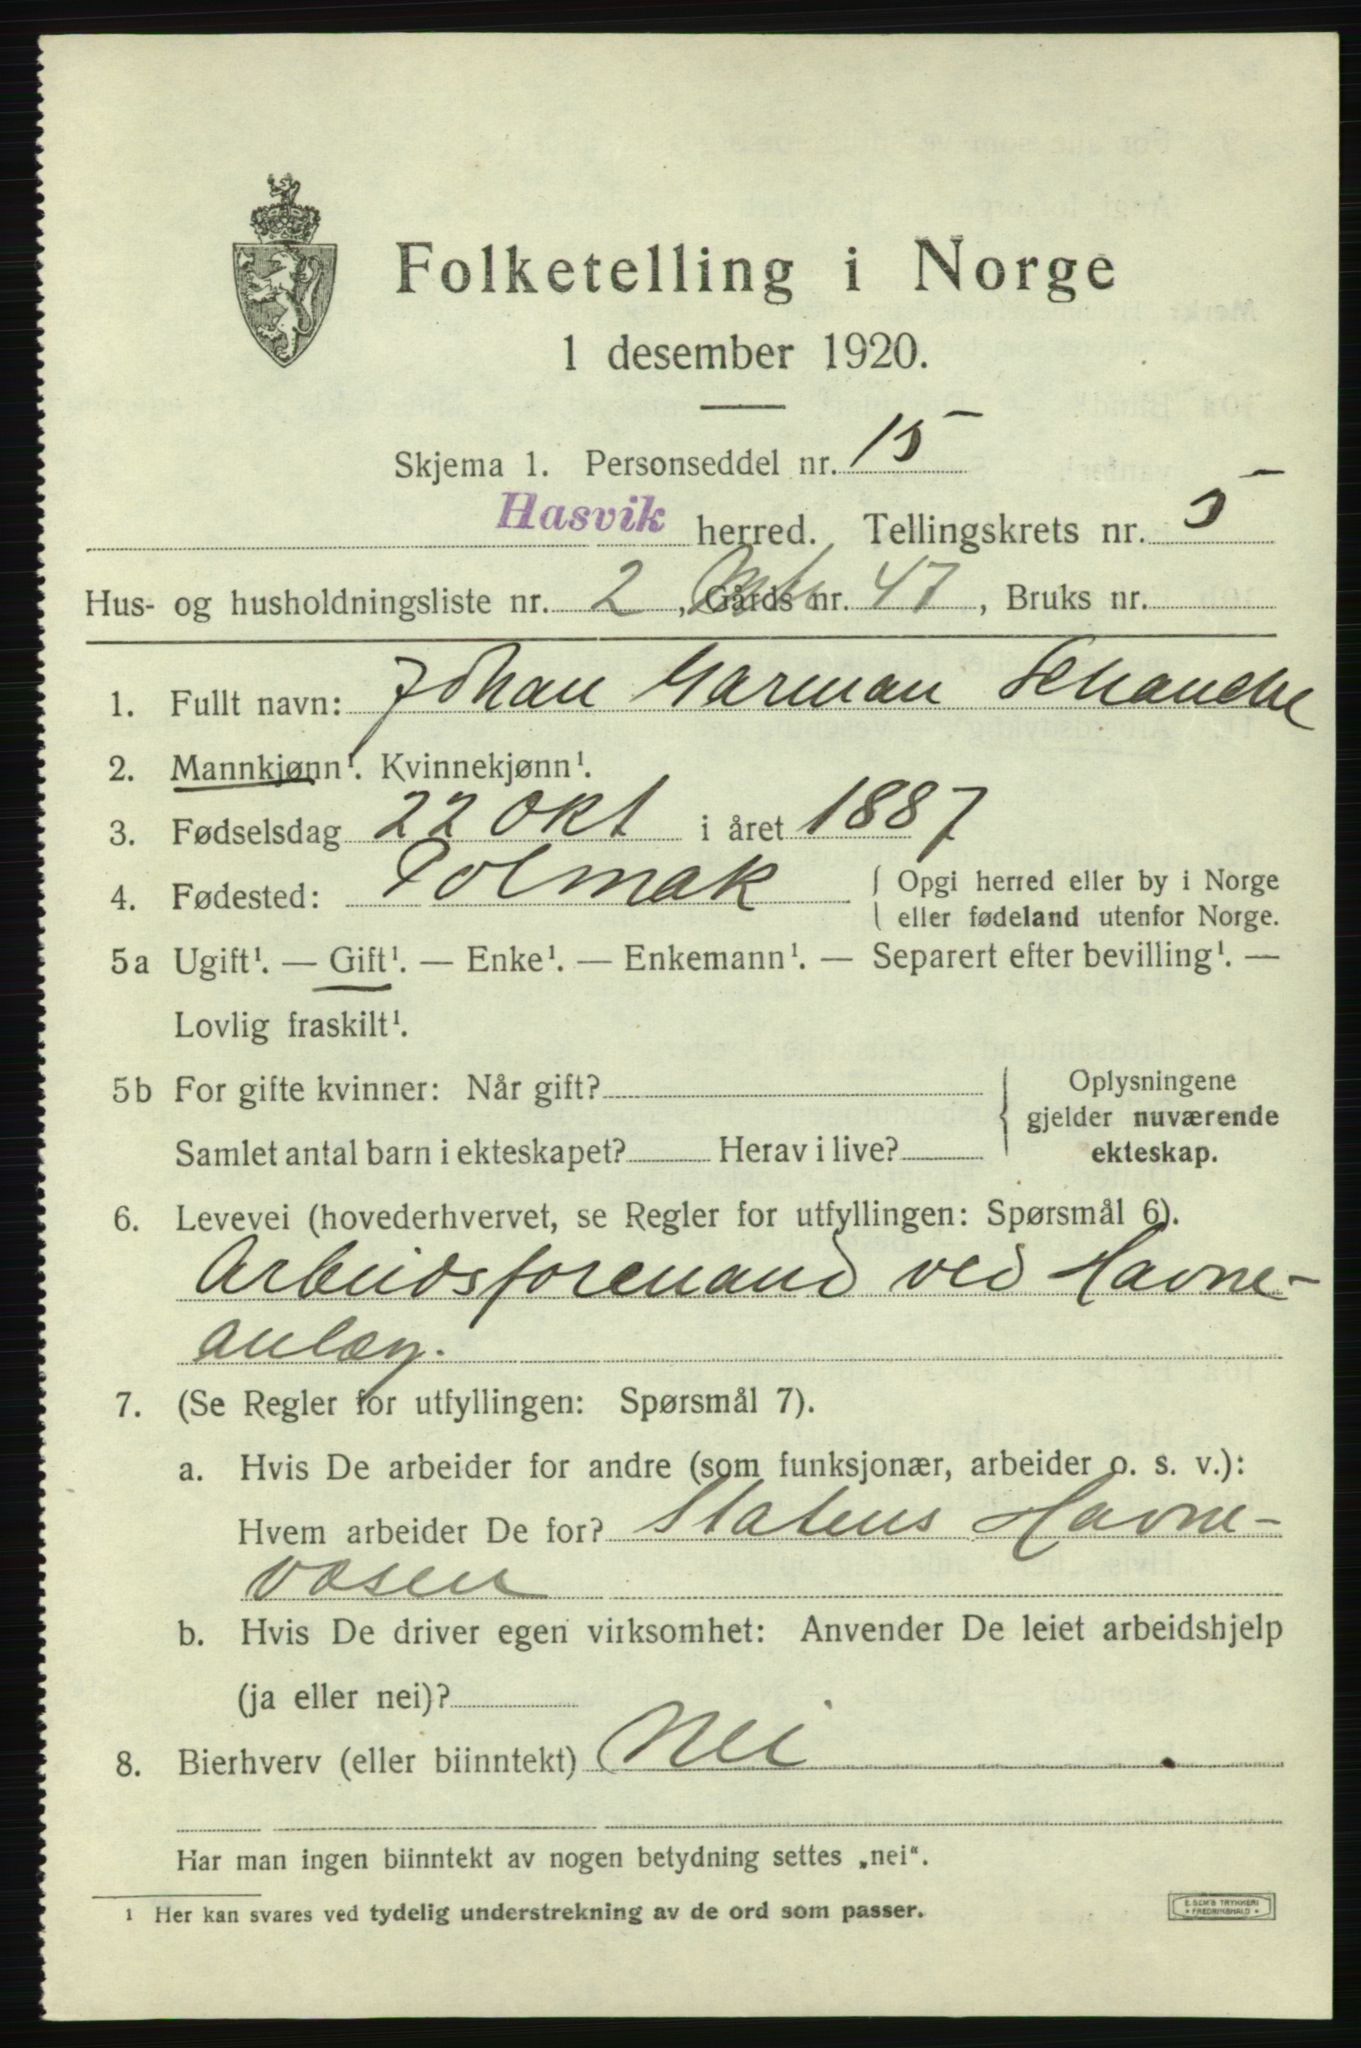 Folketelling i Norge
1 desember 1920.
Skjema 1. Personseddel nr. 15
Hasvik herred. Tellingskrets nr. 5
Hus- og husholdningsliste nr. 2, Gårds nr. 47, Bruks nr.
1. Fullt navn: Johan Garman Schanche
2. Mannkjønn¹. Kvinnekjønn¹.
3. Fødselsdag 22 Okt i året 1887
4. Fødested: Polmak { Opgi herred eller by i Norge
eller fødeland utenfor Norge.
5a Ugift¹. — Gift¹. — Enke¹. — Enkemann¹. — Separert efter bevilling¹. —
Lovlig fraskilt¹.
5b For gifte kvinner: Når gift? { Oplysningene
gjelder nuværende
Samlet antal barn i ekteskapet? Herav i live? ekteskap.
6. Levevei (hovederhvervet, se Regler for utfyllingen: Spørsmål 6).
Arbeidsformand ved Havne-
anlæg.
7. (Se Regler for utfyllingen: Spørsmål 7).
a. Hvis De arbeider for andre (som funksjonær, arbeider o. s. v.):
Hvem arbeider De for? Statens Havne-
væsen
b. Hvis De driver egen virksomhet: Anvender De leiet arbeidshjelp
(ja eller nei)?
8. Bierhverv (eller biinntekt) Nei
Har man ingen biinntekt av nogen betydning settes „nei“.
¹ Her kan svares ved tydelig understrekning av de ord som passer.
E. SEM'S TRYKKERI
FREDRIKSHALD